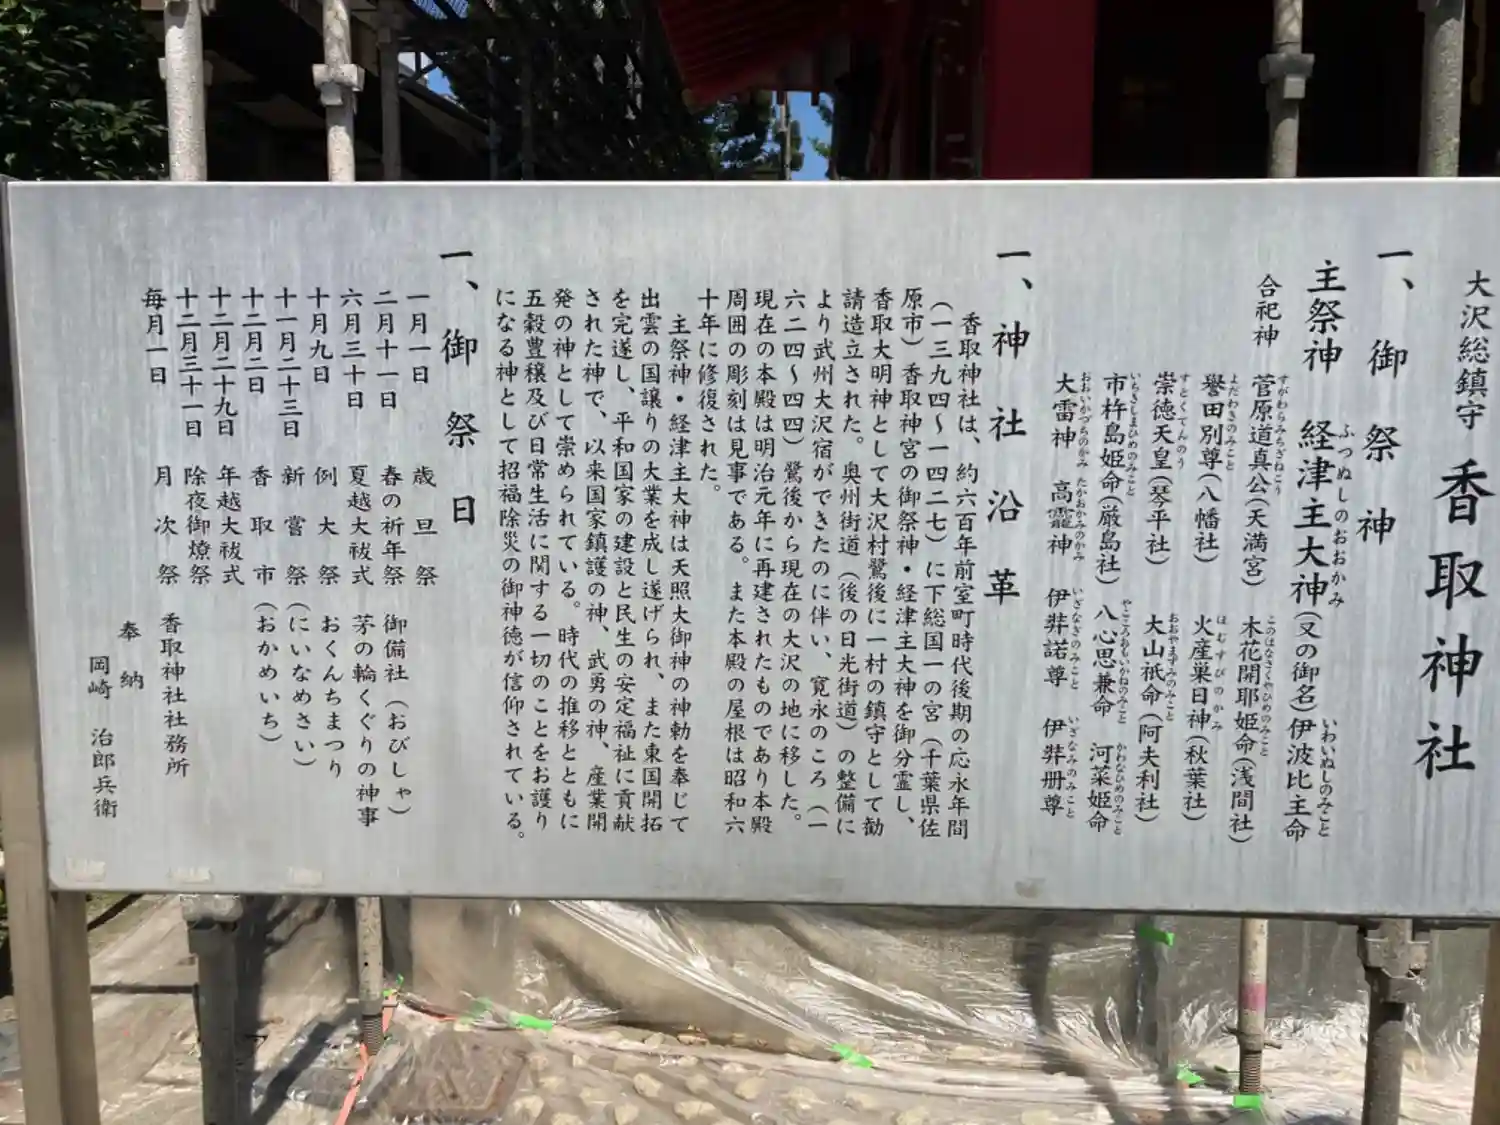 大沢総鎮守 香取神社
一、御祭神
主祭神 経津主大神(又の御名)伊波比主命
ふつぬしのおおかみ いわいぬしのみこと
合祀神
菅原道真公(天満宮) 木花開耶姫命(浅間社)
すがわらみちざねこう このはなさくやひめのみこと
誉田別尊(八幡社) 火産巣日神(秋葉社)
よだわきのみこと ほむすびのかみ
崇徳天皇(琴平社) 大山祇命(阿夫利社)
すとくてんのう おおやまずみのみこと
市杵島姫命(厳島社) 八心思兼命 河菜姫命
いちきしまひめのみこと やこころおもいかねのみこと かわなひめのみこと
大雷神 高龗神 伊弉諾尊 伊弉册尊
おおいかづちのかみ たかおかみのかみ いざなぎのみこと いざなみのみこと
一、神社沿革
香取神社は、約六百年前室町時代後期の応永年間
(一三九四〜一四二七)に下総国一の宮(千葉県佐
原市)香取神宮の御祭神・経津主大神を御分霊し、
香取大明神として大沢村鷺後に一村の鎮守として勧
請造立された。奥州街道(後の日光街道)の整備に
より武州大沢宿ができたのに伴い、寛永のころ(一
六二四〜四四)鷺後から現在の大沢の地に移した。
現在の本殿は明治元年に再建されたものであり本殿
周囲の彫刻は見事である。また本殿の屋根は昭和六
十年に修復された。
主祭神・経津主大神は天照大御神の神勅を奉じて
出雲の国譲りの大業を成し遂げられ、また東国開拓
を完遂し、平和国家の建設と民生の安定福祉に貢献
された神で、以来国家鎮護の神、武勇の神、産業開
発の神として崇められている。時代の推移とともに
五穀豊穣及び日常生活に関する一切のことをお護り
になる神として招福除災の御神徳が信仰されている。
一、御祭日
一月一日 歳旦祭
二月十一日 春の祈年祭 御備社(おびしゃ)
六月三十日 夏越大祓式 茅の輪くぐりの神事
十月九日 例大祭 おくんちまつり
十一月二十三日 新嘗祭(にいなめさい)
十二月二日 香取市(おかめいち)
十二月二十九日 年越大祓式
十二月三十一日 除夜御燎祭
毎月一日 月次祭
香取神社社務所
奉納
岡崎 治郎兵衛